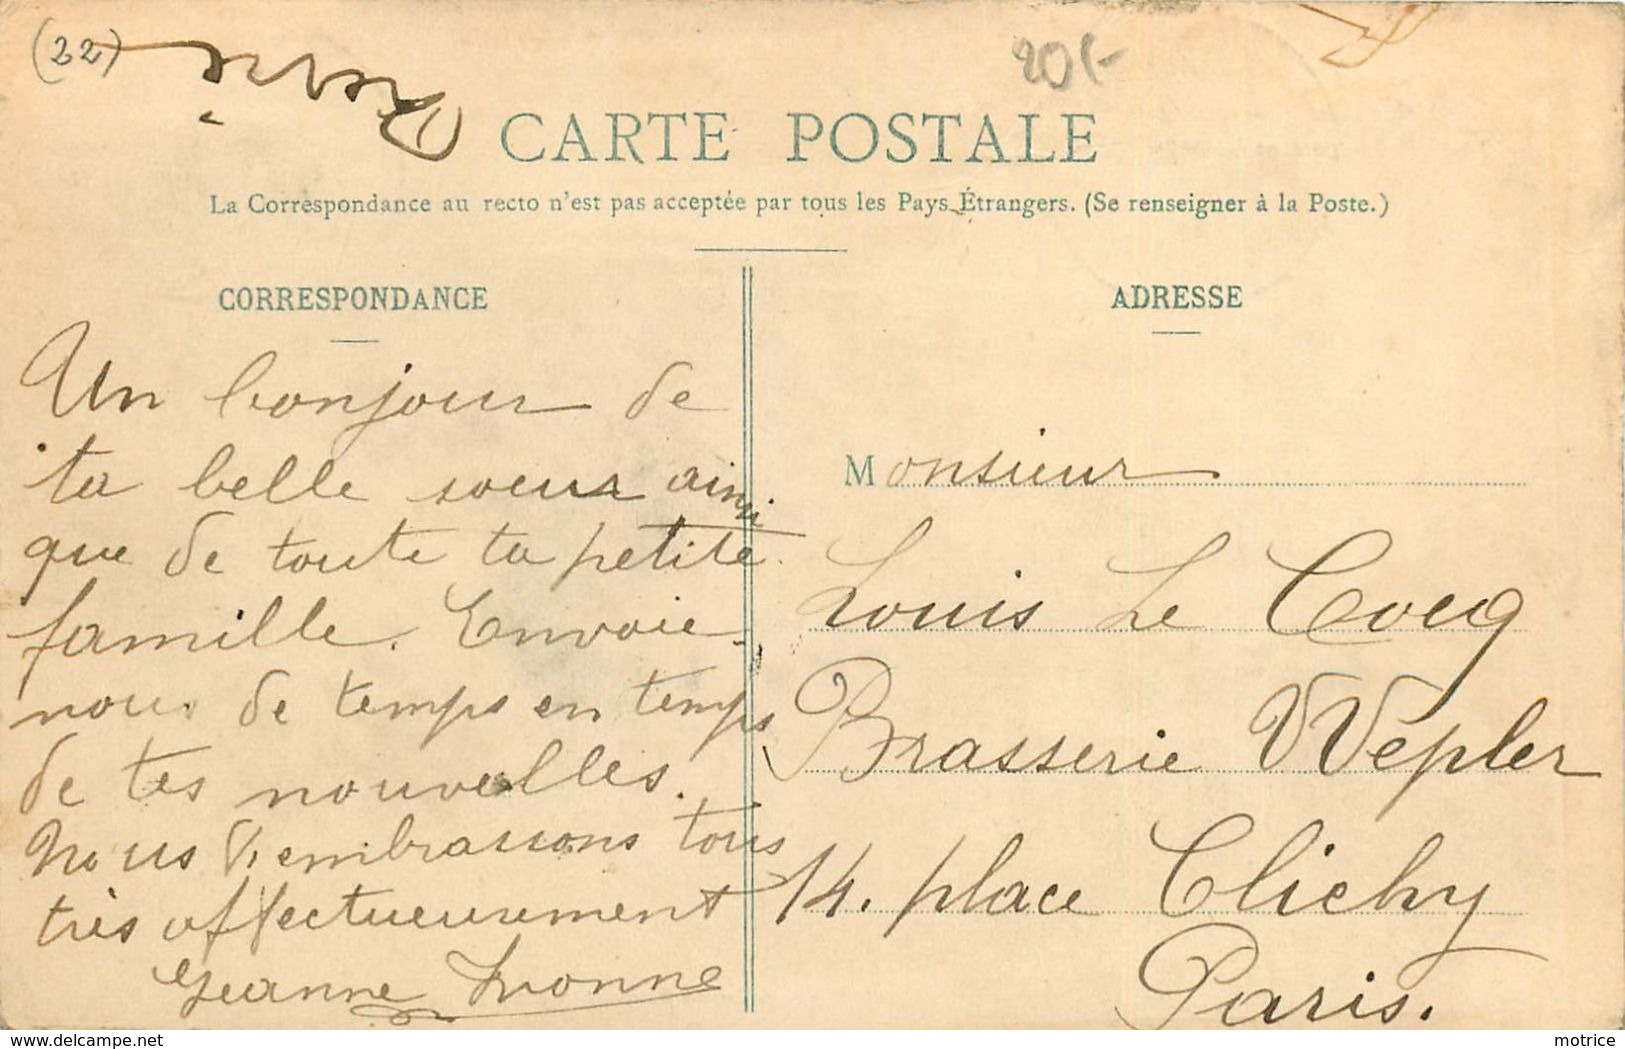 (22)
Pierre
20f-
CARTE POSTALE
La Correspondance au recto n'est pas acceptée par tous les Pays Étrangers. (Se renseigner à la Poste.)
CORRESPONDANCE
Un bonjour de
ta belle soeur ainsi
que de toute ta petite
famille. Envoie
nous de temps en temps
de tes nouvelles.
Nous t'embrassons tous
très affectueusement
Jeanne Yvonne
ADRESSE
Monsieur
Louis Le Cocq
Brasserie Wepler
14. place Clichy
Paris.
www.delcampe.net
motrice